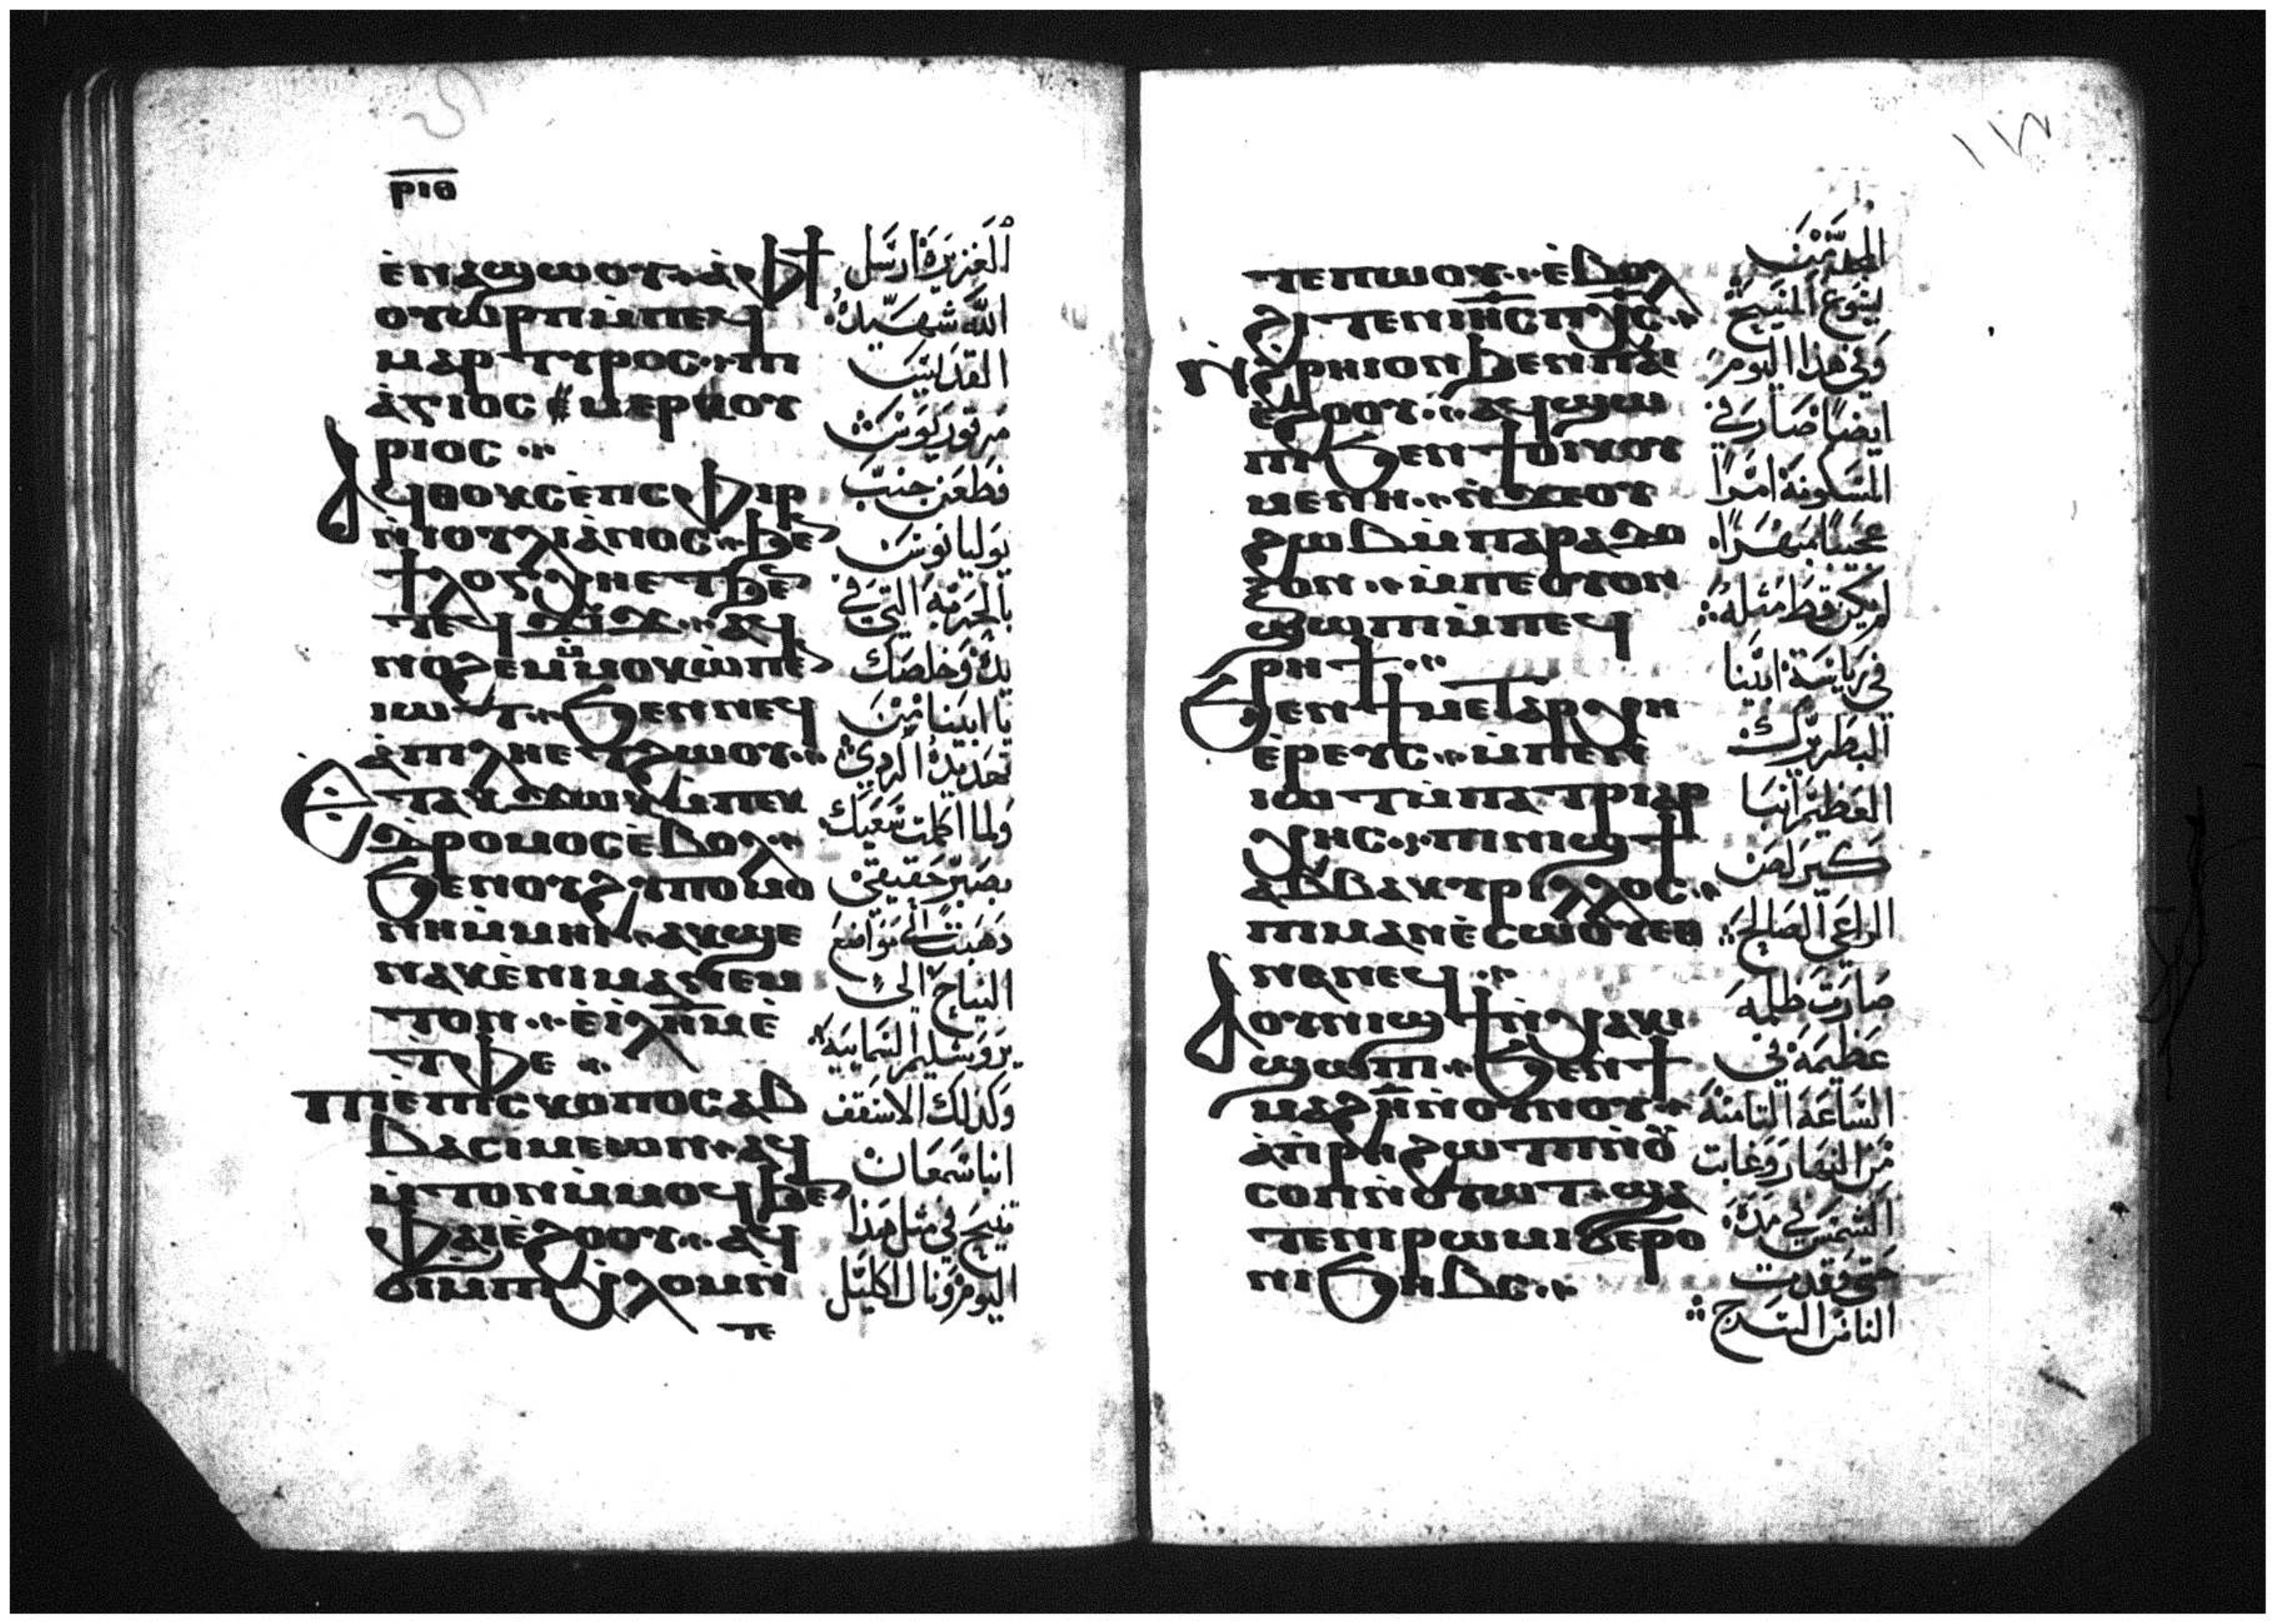 ⲣⲓⲑ
ⲉ̀ⲛⲁϣⲱⲟⲩ ⲁ̀ⲫϯ
ⲟⲩⲱⲣⲡ ⲙ̀ⲡⲉϥ
ⲙⲁⲣⲧⲩⲣⲟⲥ ⲡⲓ
ⲁ̀ⲅⲓⲟⲥ ⲙⲉⲣⲕⲟⲩ
ⲣⲓⲟⲥ
ⲁϥⲑⲟⲩⲕⲥ ⲉ̀ⲡⲥⲫⲓⲣ
ⲛ̀ⲓⲟⲩⲗⲓⲁⲛⲟⲥ ϧⲉⲛ
ϯⲗⲟⲅⲭⲏ ⲉⲧϧⲉⲛ
ⲧⲉϥϫⲓϫ ⲁϥ
ⲛⲟϩⲉⲙ ⲙ̀ⲙⲟⲕ ⲱ̀ ⲡⲉⲛ
ⲓⲱⲧ ϧⲉⲛ ⲛⲉϥ
ⲁ̀ⲡⲓⲗⲏ ⲉⲧϩⲱⲟⲩ
ⲉⲧⲁⲕϫⲱⲕ ⲙ̀ⲡⲉⲕ
ⲇⲣⲟⲙⲟⲥ ⲉ̀ⲃⲟⲗ
ϧⲉⲛ ⲟⲩϩⲩⲡⲟⲙⲟ
ⲛⲏ ⲙ̀ⲙⲏⲓ ⲁⲕϣⲉ
ⲛⲁⲕ ⲉ̀ⲛⲓⲙⲁⲛⲉⲙ
ⲧⲟⲛ ⲉ̀ⲓⲗⲏⲙ ⲉ̀
ⲧⲫⲉ
ⲡⲓⲉ̀ⲡⲓⲥⲕⲟⲡⲟⲥ ⲁⲃ
ⲃⲁ ⲥⲓⲙⲉⲱⲛ ⲁϥ
ⲙ̀ⲧⲟⲛ ⲙ̀ⲙⲟϥ ϧⲉⲛ
ⲫⲁⲓ ⲉ̀ϩⲟⲟⲩ ⲁϥ
ϭⲓ ⲙ̀ⲡⲓⲭⲗⲟⲙ ⲛ̀
ⲧⲉ
الغزيرة ارسل
الله شهيده
القديس
مرقوريوس
فطعن جنب
يوليانوس
بالحربة التي في
يده وخلصك
يا ابينا من
تهديده الردي
ولما اكملت سعيك
بصبر حقيقي
ذهبت الى مواضع
النياح الى
يروشليم السمايية
وكذلك الاسقف
انبا سمعان
تنيح في مثل هذا
اليوم ونال اكليل
ⲧⲉ ⲡⲱⲟⲩ ⲉ̀ⲃⲟⲗ
ϩⲓⲧⲉⲛ ⲓⲏⲥ ⲡⲭⲥ
ⲛ̀ϩⲣⲏⲓ ⲟⲛ ϧⲉⲛ ⲡⲁⲓ
ⲉ̀ϩⲟⲟⲩ ⲁϥϣⲱ
ⲡⲓ ϧⲉⲛ ϯⲟⲓⲕⲟⲩ
ⲙⲉⲛⲏ ⲛ̀ϫⲉ ⲟⲩ
ϩⲱⲃ ⲙ̀ⲡⲁⲣⲁⲇⲟ
ⲝⲟⲛ ⲙ̀ⲡⲉ ⲟⲩⲟⲛ
ϣⲱⲡⲓ ⲙ̀ⲡⲉϥ
ⲣⲏϯ
ϧⲉⲛ ϯⲙⲉⲧⲁⲣⲭⲏ
ⲉ̀ⲣⲉⲩⲥ ⲙ̀ⲡⲉⲛ
ⲓⲱⲧ ⲙ̀ⲡⲁⲧⲣⲓⲁⲣ
ⲭⲏⲥ ⲡⲓⲛⲓϣϯ
ⲁⲃⲃⲁ ⲕⲩⲣⲓⲗⲗⲟⲥ
ⲡⲓⲙⲁⲛⲉ̀ⲥⲱⲟⲩ ⲉⲑ
ⲛⲁⲛⲉϥ
ⲁ ⲟⲩⲛⲓϣϯ ⲛ̀ⲭⲁⲕⲓ
ϣⲱⲡⲓ ϧⲉⲛ ϯ
ⲙⲁϩⲏ̅ ⲛ̀ⲟⲩⲛⲟⲩ
ⲁ̀ⲫⲣⲏ ϩⲱⲧⲡ ⲛ̀ⲟⲩ
ⲥⲟⲡ ⲛ̀ⲟⲩⲱⲧ ϣⲁ
ⲧⲉ ⲛⲓⲣⲱⲙⲓ ϭⲉⲣⲟ
ⲛⲓϧⲏⲃⲥ
المجد من
يسوع المسيح
وفي هذا اليوم
ايضا صار في
المسكونة امرا
عجيبا مبهرا
لم يكن قط مثله
في رياسة ابينا
البطريرك
العظيم انبا
كيرلص
الراعي الصالح
صارت ظلمه
عظيمة في
الساعة الثامنة
من النهار وغابت
الشمس في مدة
حتى وقدت
الناس السرج